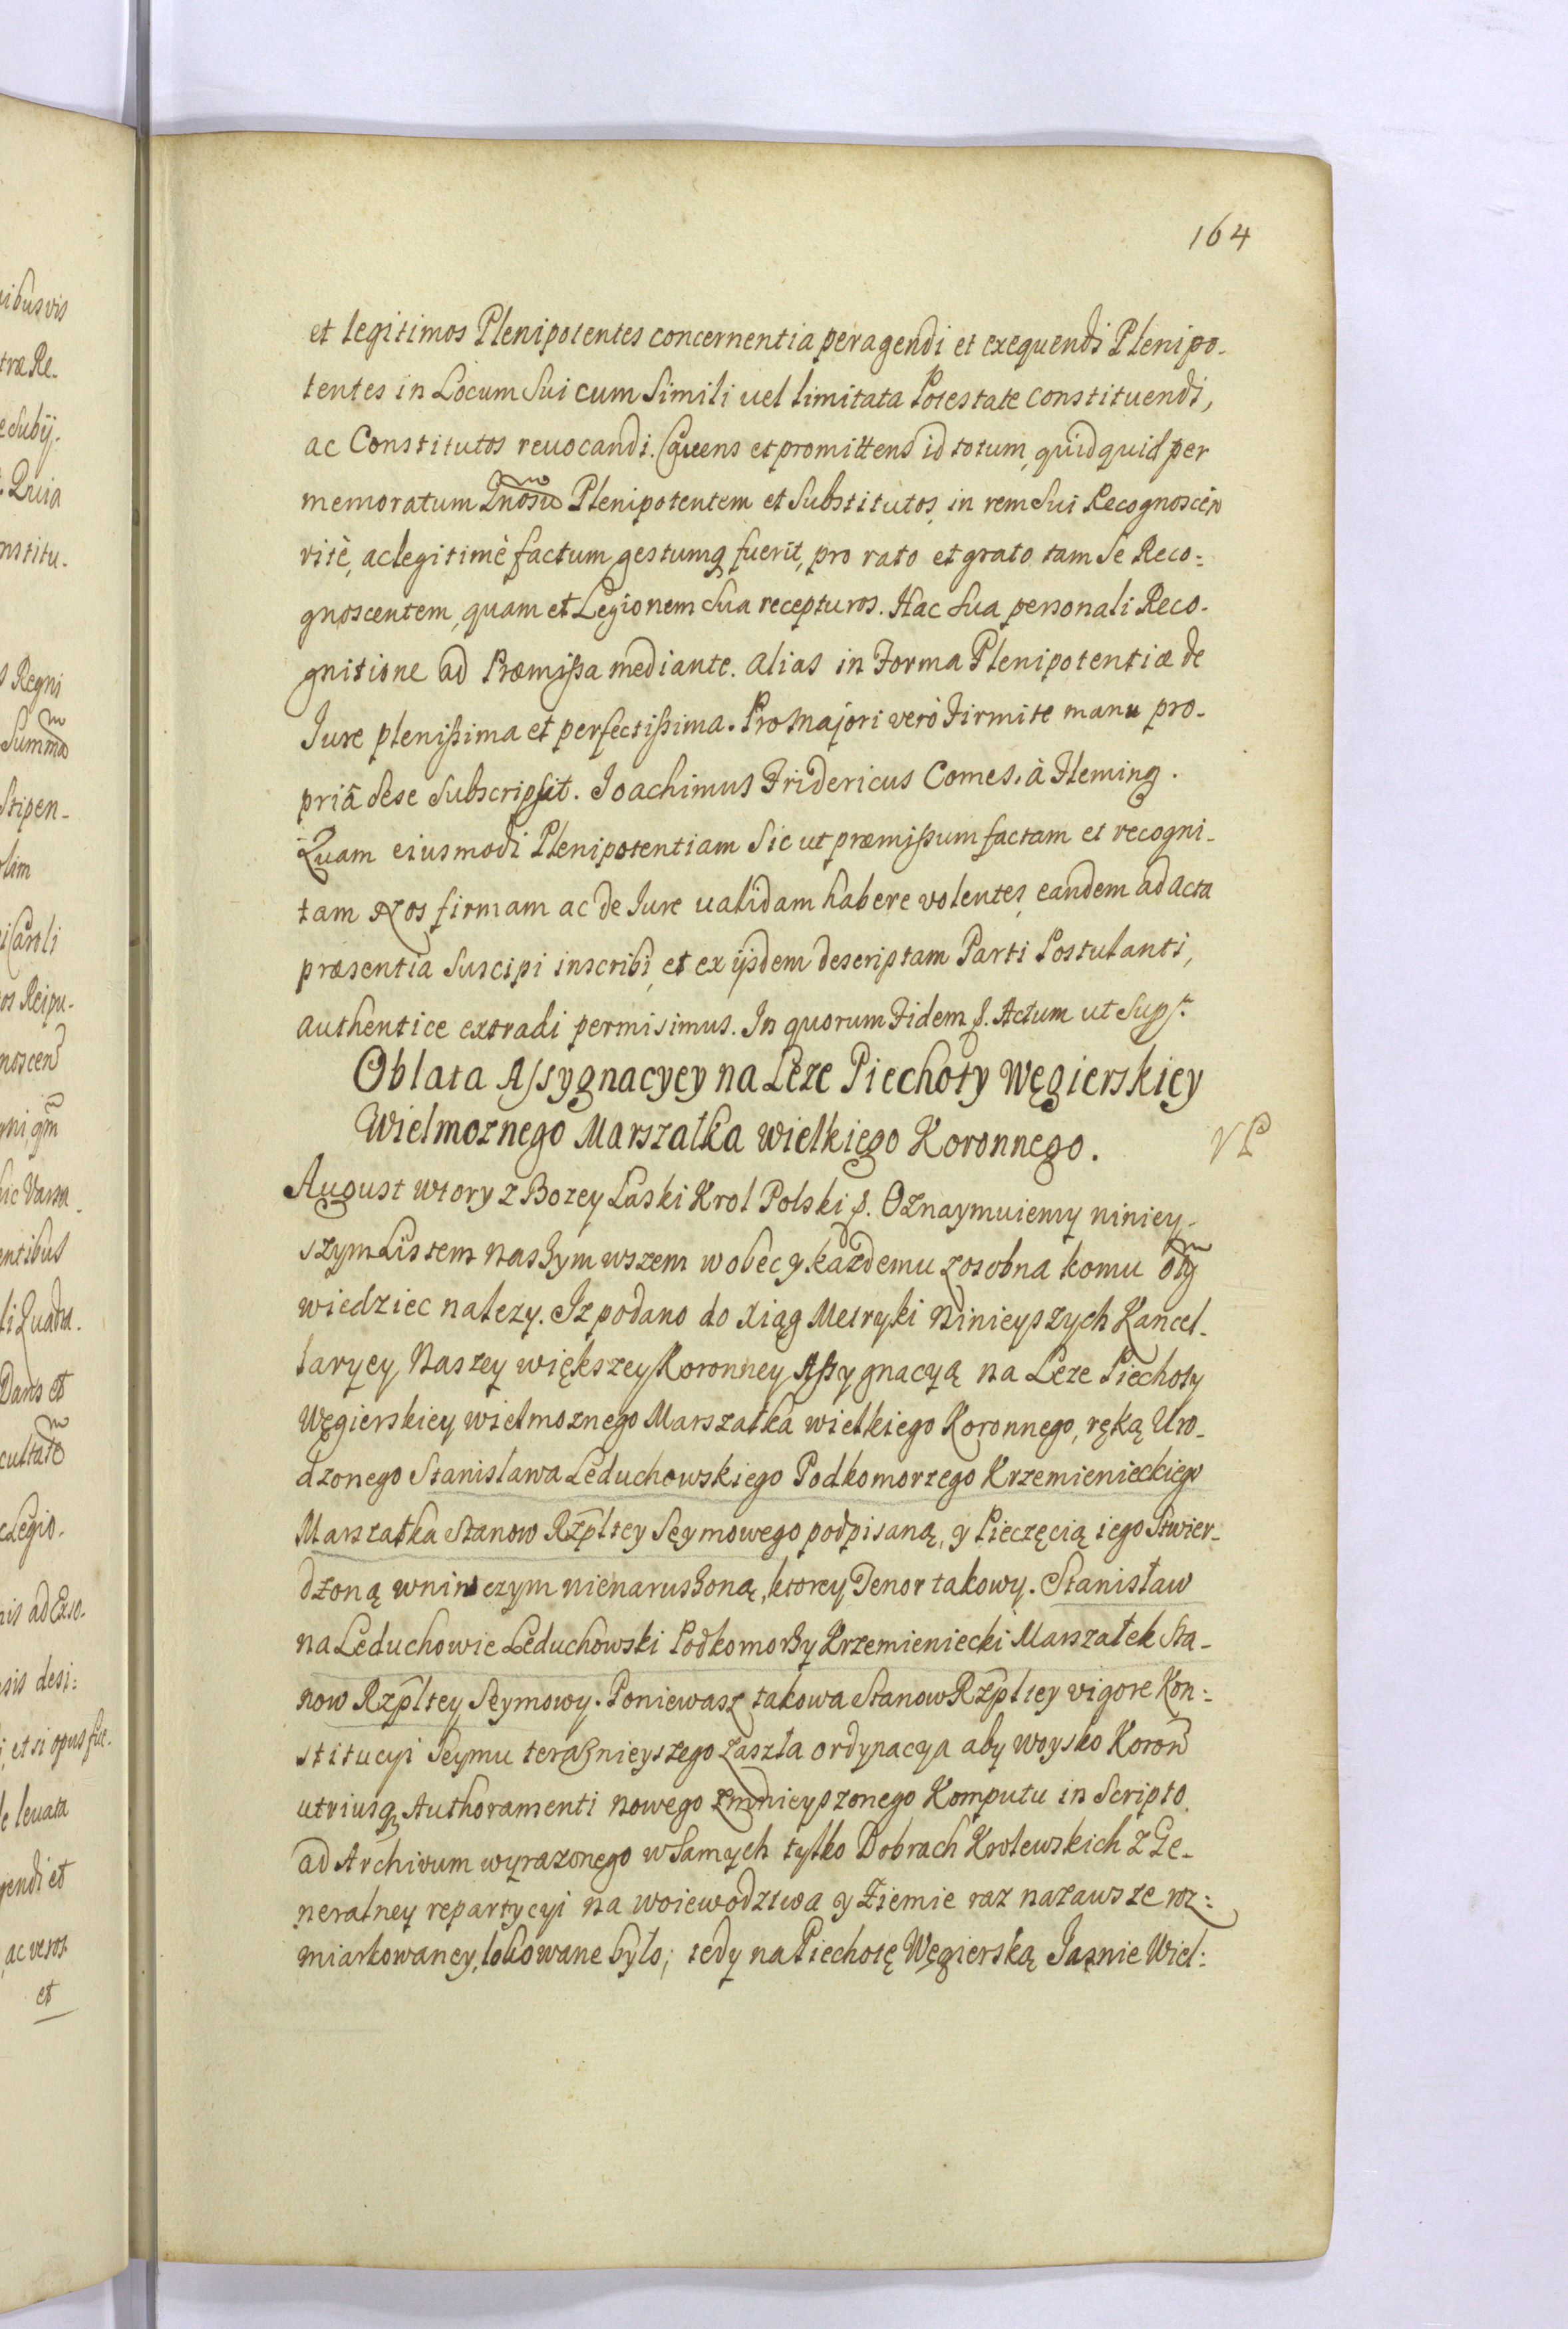 164
et legitimos Plenipotentes concernentia peragendi et exequendi Plenipo-
tentes in Locum Sui cum Simili uel limitata Potestate constituendi,
ac Constitutos reuocandi. Cauens et promittens id totum, quidquid per
memoratum Plenipotentem et Substitutos, in rem Sui Recognoscen
ritè, ac legitimè factum gestumq fuerit, pro rato et grato tam Se Reco:
gnoscentem, quam et Legionem Sua recepturos. Hac Sua personali Reco-
gnitione ad Præmissa mediante. alias in Forma Plenipotentiæ de
Iure plenissima et perfectissima. Pro Majori verò Firmite manu pro-
priâ Sese Subscripsit. Joachimus Fridericus Comes, à Fleming.
Quam eiusmodi Plenipotentiam Sic ut præmissum factam et recogni-
tam Nos firmam ac de Iure ualidam habere volentes, eandem ad Acta
præsentia Suscipi inscribi, et ex ijsdem descriptam Parti Postulanti,
authentice extradi permisimus. In quorum Fidem &. Actum ut Sup:
Oblata Assygnacyey na Leze Piechoty Węgierskiey
Wielmoznego Marszałka wielkiego Koronnego.
August wtory z Bozey Łaski Krol Polski &. Oznaymuiemy niniey-
szym Listem naszym wszem wobec y kazdemu zosobna komu o tÿ
wiedziec nalezy. Iz podano do Xiąg Metryki Ninieyszych Kancel-
laryey Naszey większey Koronney Assygnacyą na Leze Piechoty
Węgierskiey wielmoznego Marszałka wielkiego Koronnego, ręką Uro-
dzonego Stanislawa Leduchowskiego Podkomorzego Krzemienieckiego
Marszałka Stanow Rzpltey Seymowego podpisaną, y Pieczęcią iego Stwier-
dzoną wniwczym nienaruszoną, ktorey Tenor takowy. Stanisław
na Leduchowie Leduchowski Podkomorzy Krzemieniecki Marszałek Sta-
now Rzpltey Seymowy. Poniewasz takowa Stanow Rzpltey vigore Kon:
stitucyi Seymu teraznieyszego zaszła ordynacya aby woysko Koron
utriusq Authoramenti nowego zmnieyszonego Komputu in Scripto
ad Archivum wyrazonego w Samych tylko Dobrach Krolewskich z Ge-
neralney repartycyi na woiewodztwa y Ziemie raz nazawsze roz:
miarkowaney, lokowane było; tedy na Piechotę Węgierską Jasnie Wiel: